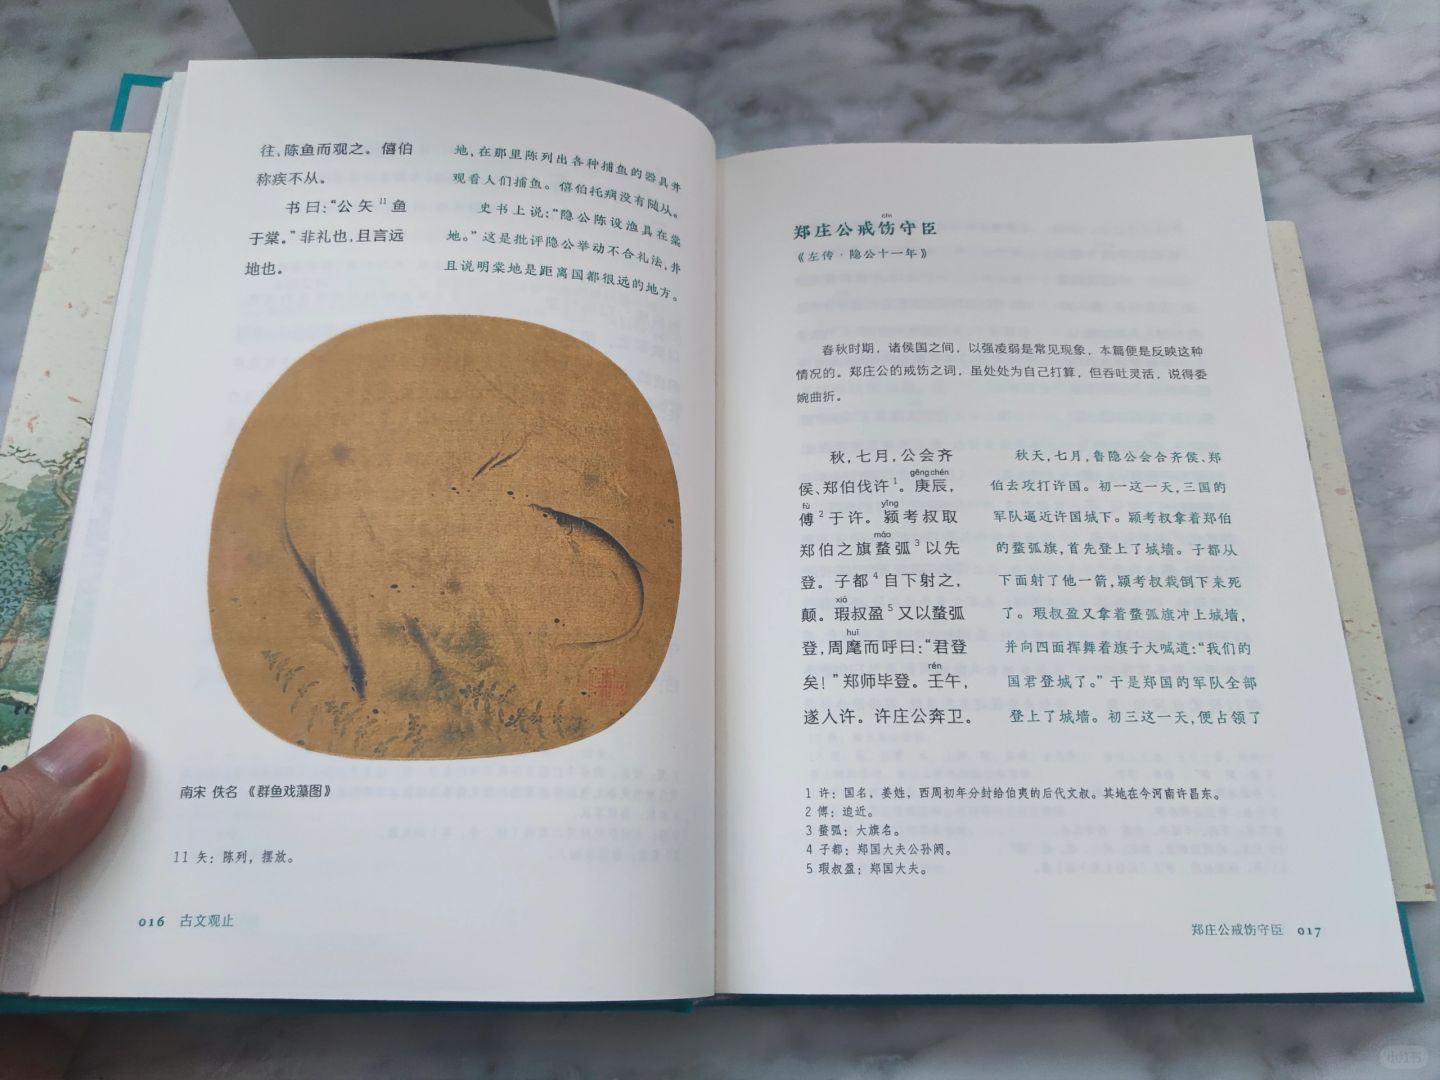 往，陈鱼而观之。僖伯
称疾不从。
书曰：“公矢11鱼
于棠。”非礼也，且言远
地也。
地，在那里陈列出各种捕鱼的器具并
观看人们捕鱼。僖伯托病没有随从。
史书上说：“隐公陈设渔具在棠
地。”这是批评隐公举动不合礼法，并
且说明棠地是距离国都很远的地方。
南宋 佚名 《群鱼戏藻图》
11 矢：陈列，摆放。
016 古文观止
chì
郑庄公戒饬守臣
《左传·隐公十一年》
春秋时期，诸侯国之间，以强凌弱是常见现象，本篇便是反映这种
情况的。郑庄公的戒饬之词，虽处处为自己打算，但吞吐灵活，说得委
婉曲折。
秋，七月，公会齐
gēng chén
侯、郑伯伐许1。庚辰，
fù yǐng
傅2于许。颍考叔取
máo
郑伯之旗蝥弧3以先
登。子都4自下射之，
xiá
颠。瑕叔盈5又以蝥弧
huī
登，周麾而呼曰：“君登
rén
矣！”郑师毕登。壬午，
遂入许。许庄公奔卫。
秋天，七月，鲁隐公会合齐侯、郑
伯去攻打许国。初一这一天，三国的
军队逼近许国城下。颍考叔拿着郑伯
的蝥弧旗，首先登上了城墙。子都从
下面射了他一箭，颍考叔栽倒下来死
了。瑕叔盈又拿着蝥弧旗冲上城墙，
并向四面挥舞着旗子大喊道：“我们的
国君登城了。”于是郑国的军队全部
登上了城墙。初三这一天，便占领了
1 许：国名，姜姓，西周初年分封给伯夷的后代文叔。其地在今河南许昌东。
2 傅：迫近。
3 蝥弧：大旗名。
4 子都：郑国大夫公孙阏。
5 瑕叔盈：郑国大夫。
郑庄公戒饬守臣 017
小红书